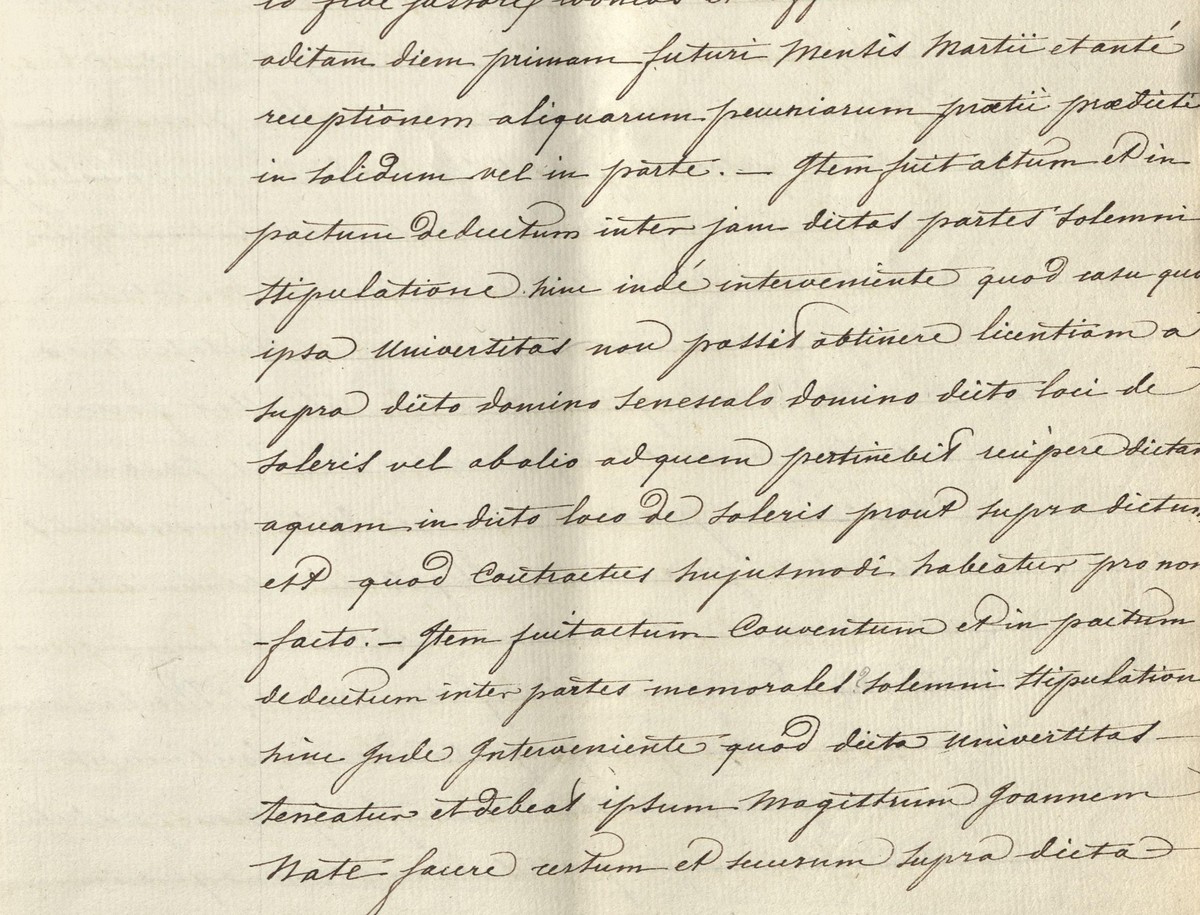 aditam diem primam futuri Mensis Martii et anté
receptionem aliquarum pecuniarum prætii prædicti
in solidum vel in parte. — Item fuit actum et in
pactum deductum inter jam dictas partes solemni
stipulatione hinc indé interveniente quod casu quo
ipsa Universitas non possit obtinere licentiam a
supra dicto domino senescalo domino dicto loci de
soleris vel abalio ad quem pertinebit recipere dictam
aquam in dicto loco de soleris prout supra dictum
est quod Contractus hujusmodi habeatur pro non
-facto. — Item fuit actum Conventum et in pactum
deductum inter partes memorales ? solemni stipulation
hinc Inde Interveniente quod dicta Universitas —
teneatur et debeat ipsum Magistrum Joannem
Naté facere certum et securum supra dicta —